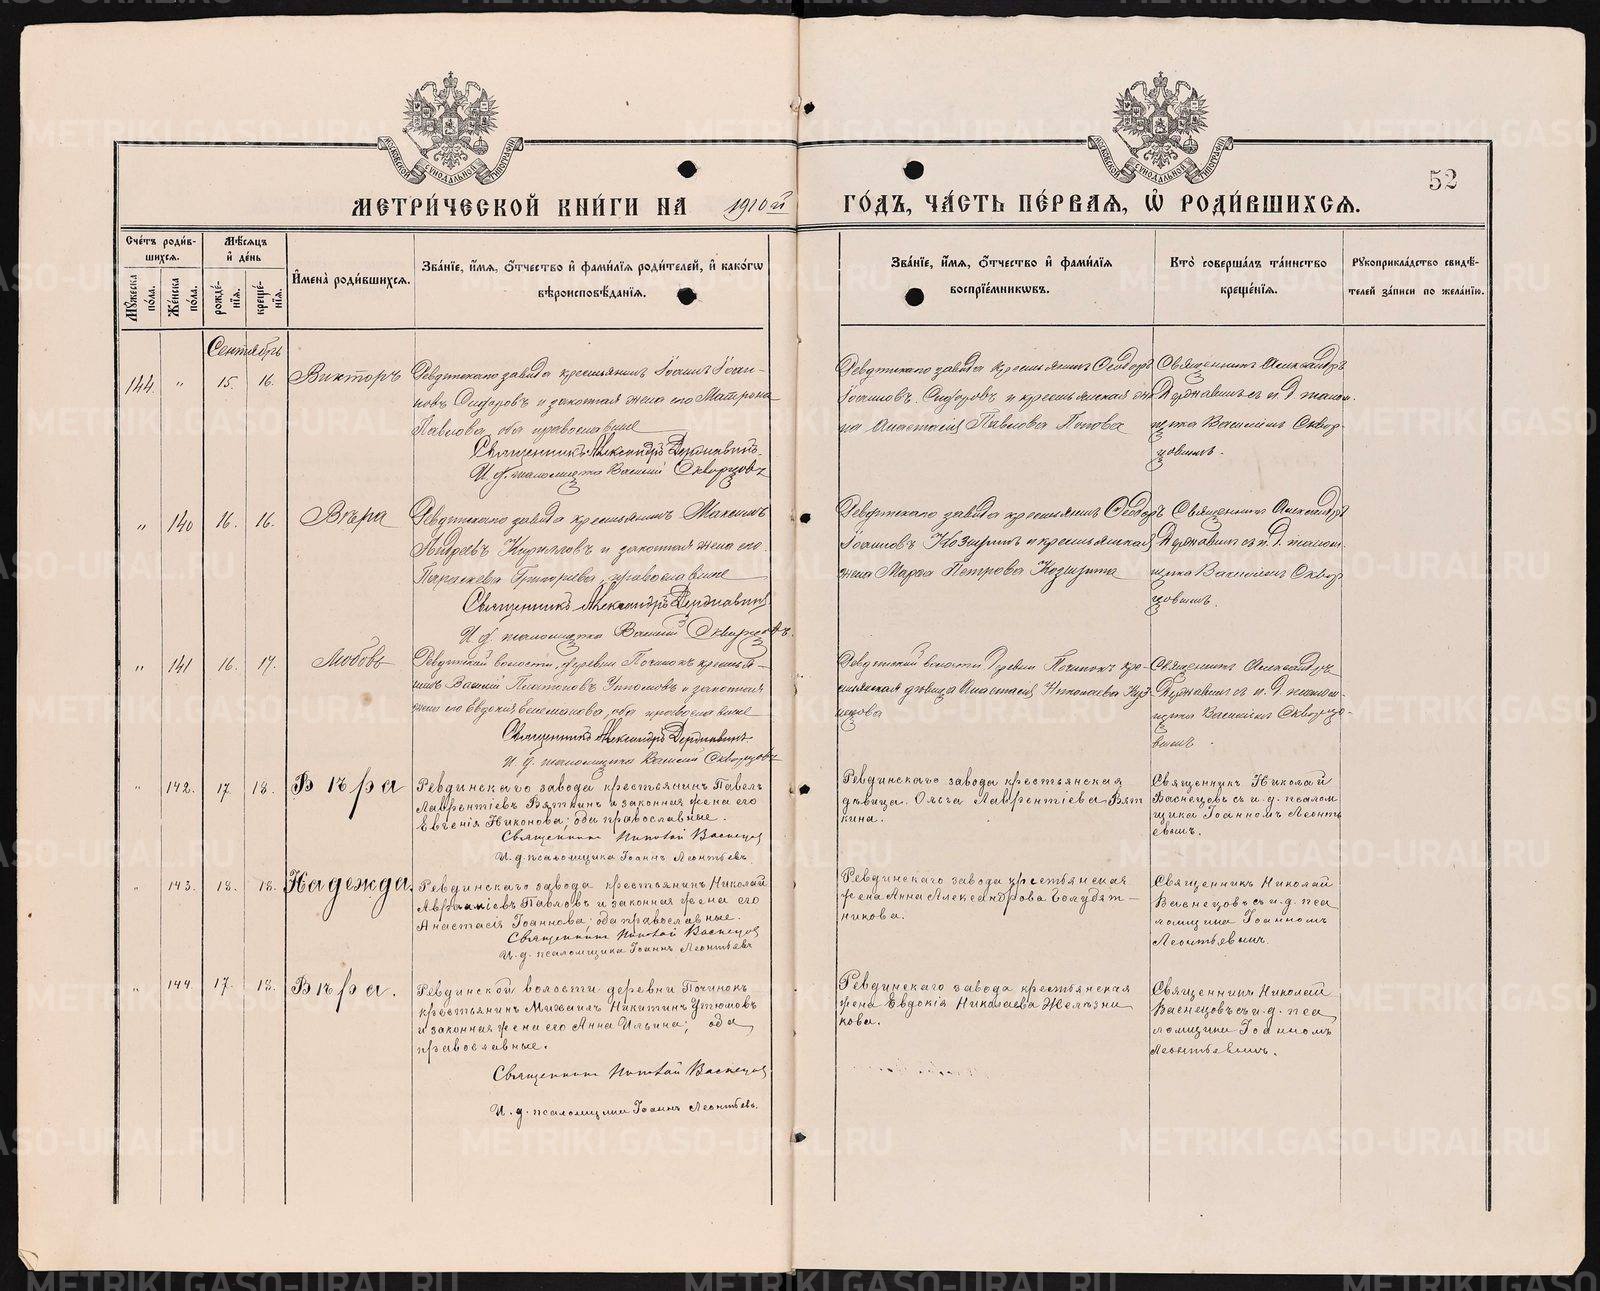 52
МЕТРИ́ЧЕСКОЙ КНИ́ГИ НА 1910й ГО́ДЪ, ЧА́СТЬ ПЕ́РВАЯ, Ѿ РОДИ́ВШИХСЯ.
Сче́тъ роди́вшихся.
Мꙋ́жеска по́ла.
Же́нска по́ла.
Мѣ́сяцъ и҆ де́нь
рожде́нїя.
креще́нїя.
И҆мена̀ роди́вшихся.
Зва́нїе, и҆́мя, ѻ҆́тчество и҆ фами́лїя роди́телей, и҆ како́гѡ
вѣроисповѣ́данїя.
Зва́нїе, и҆́мя, ѻ҆́тчество и҆ фами́лїя
воспрїе́мникѡвъ.
Кто̀ соверша́лъ та́инство
креще́нїя.
Рꙋкоприкла́дство свидѣ́телей за́писи по жела́нїю.
Сентябрь
144 " 15. 16. Викторъ
Ревдинскаго завода крестьянинъ Іоаннъ Іоан-
новъ Сидоровъ и законная жена его Матрона
Павлова, оба православные
Священникъ Александръ Державинъ.
И. д. псаломщика Василій Скворцовъ
Ревдинскаго завода крестьянинъ Ѳеодоръ
Іоанновъ Сидоровъ и крестьянская же-
на Анастасія Павлова Попова
Священникъ Александръ
Державинъ съ и. д. псалом-
щика Василіемъ Сквор-
цовымъ.
" 140 16. 16. Вѣра
Ревдинскаго завода крестьянинъ Максимъ
Андреевъ Кирилловъ и законная жена его
Параскева Григорьева, православные
Священникъ Александръ Державинъ
И. д. псаломщика Василій Скворцовъ.
Ревдинскаго завода крестьянинъ Ѳеодоръ
Іоанновъ и крестьянская
жена Марѳа Петрова
Священникъ Александръ
Державинъ съ и. д. псалом-
щика Василіемъ Сквор
цовымъ.
" 141 16. 17. Любовь
Ревдинской волости, деревни Починокъ крестья-
нинъ Василій Платоновъ Утюмовъ и законная
жена его Евдокія, оба православные
Священникъ Александръ Державинъ.
И. д. псаломщика Василій Скворцовъ
Ревдинской волости деревни Починокъ кре-
стьянская дѣвица Анастасія Николаева Куз-
нецова
Священникъ Александръ
Державинъ съ и. д. псалом-
щика Василіемъ Скворцо-
вымъ.
" 142. 17. 18. Вѣра
Ревдинскаго завода крестьянинъ Павелъ
Лаврентіевъ Вяткинъ и законная жена его
Евгенія Никонова; оба православные.
Священникъ Николай Васнецовъ
И. д. псаломщика Іоаннъ Леонтьевъ.
Ревдинскаго завода крестьянская
дѣвица Ольга Лаврентіева Вят
кина.
Священникъ Николай
Васнецовъ съ и. д. псалом
щика Іоанномъ Леонть
евымъ.
" 143. 18. 18. Надежда.
Ревдинскаго завода крестьянинъ Николай
Авраміевъ Павловъ и законная жена его
Анастасія Іоаннова; оба православные.
Священникъ Николай Васнецовъ
И. д. псаломщика Іоаннъ Леонтьевъ
Ревдинскаго завода крестьянская
жена Анна Александрова Голубят-
никова.
Священникъ Николай
Васнецовъ съ и. д. пса
ломщика Іоанномъ
Леонтьевымъ.
" 144. 17. 18. Вѣра.
Ревдинской волости деревни Починокъ
крестьянинъ Михаилъ Никитинъ Утюмовъ
и законная жена его Анна Ильина; оба
православные.
Священникъ Николай Васнецовъ
И. д. псаломщика Іоаннъ Леонтьевъ.
Ревдинскаго завода крестьянская
жена Евдокія Николаева Желѣзни
кова.
Священникъ Николай
Васнецовъ съ и. д. пса
ломщика Іоанномъ
Леонтьевымъ.
METRIKI.GASO-URAL.RU